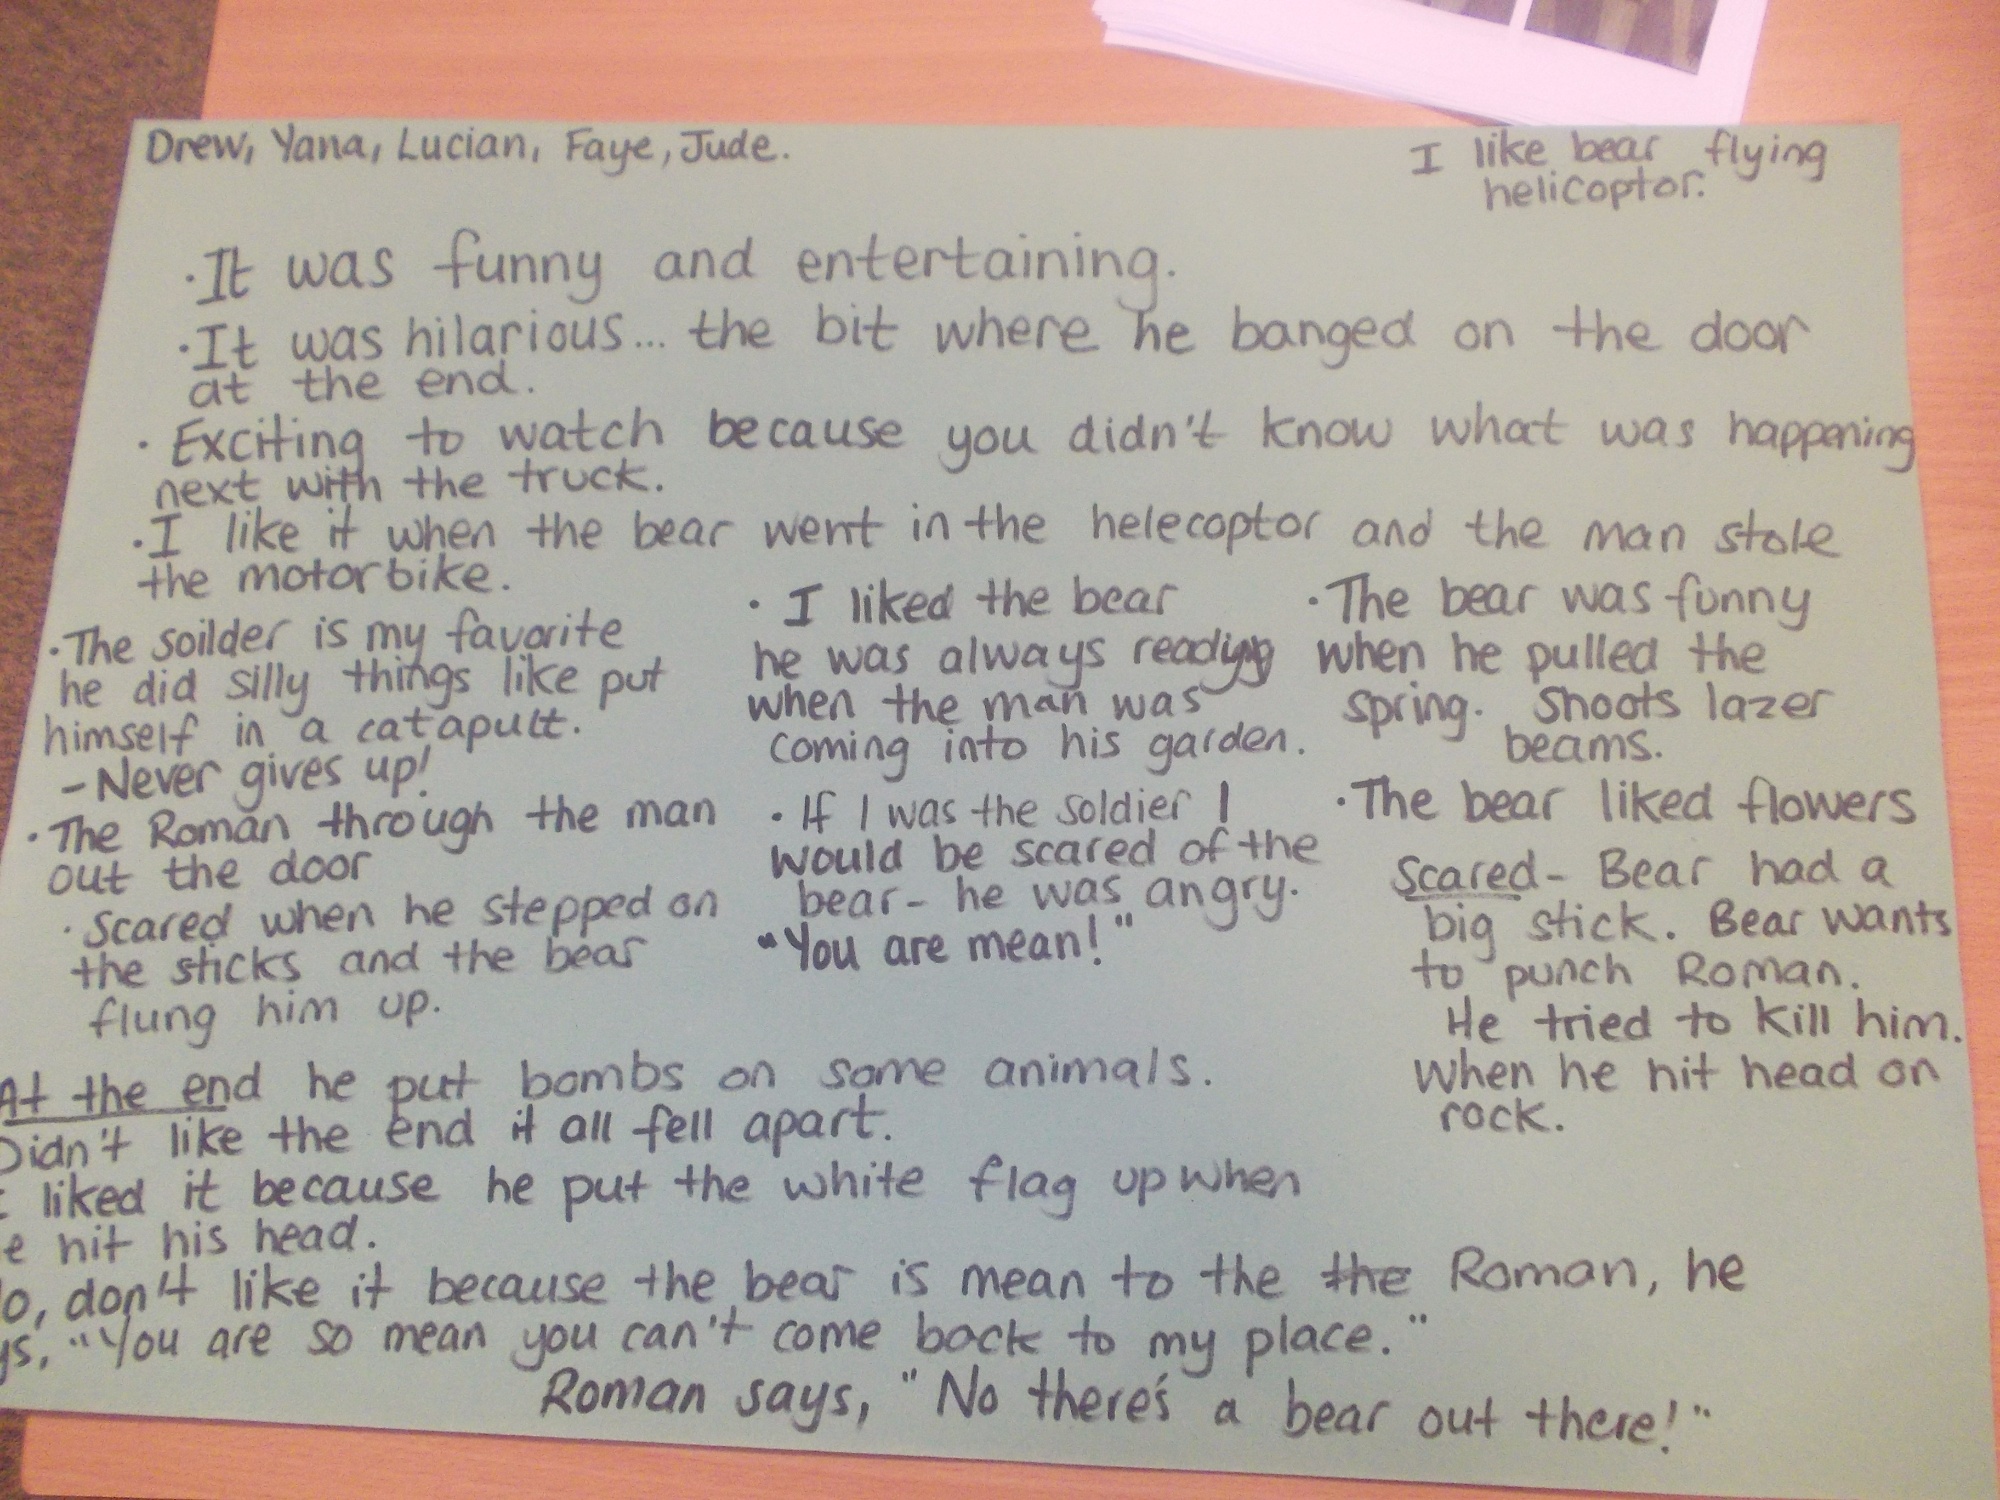 Drew, Yana, Lucian, Faye, Jude.
I like bear flying
helicoptor.
·It was funny and entertaining.
·It was hilarious... the bit where he banged on the door
at the end.
· Exciting to watch because you didn't know what was happening
next with the truck.
·I like it when the bear went in the helecoptor and the man stole
the motorbike.
·The soilder is my favorite
he did silly things like put
himself in a catapult.
-Never gives up!
·The Roman through the man
out the door
·Scared when he stepped on
the sticks and the bear
flung him up.
· I liked the bear
he was always ready
when the man was
coming into his garden.
· If I was the soldier I
would be scared of the
bear- he was angry.
"You are mean!"
·The bear was funny
when he pulled the
spring. Shoots lazer
beams.
·The bear liked flowers
Scared- Bear had a
big stick. Bear wants
to punch Roman.
He tried to kill him.
When he hit head on
rock.
At the end he put bombs on some animals.
Didn't like the end it all fell apart.
liked it because he put the white flag up when
e hit his head.
o, don't like it because the bear is mean to the the Roman, he
ys, "You are so mean you can't come back to my place."
Roman says, "No there's a bear out there!"